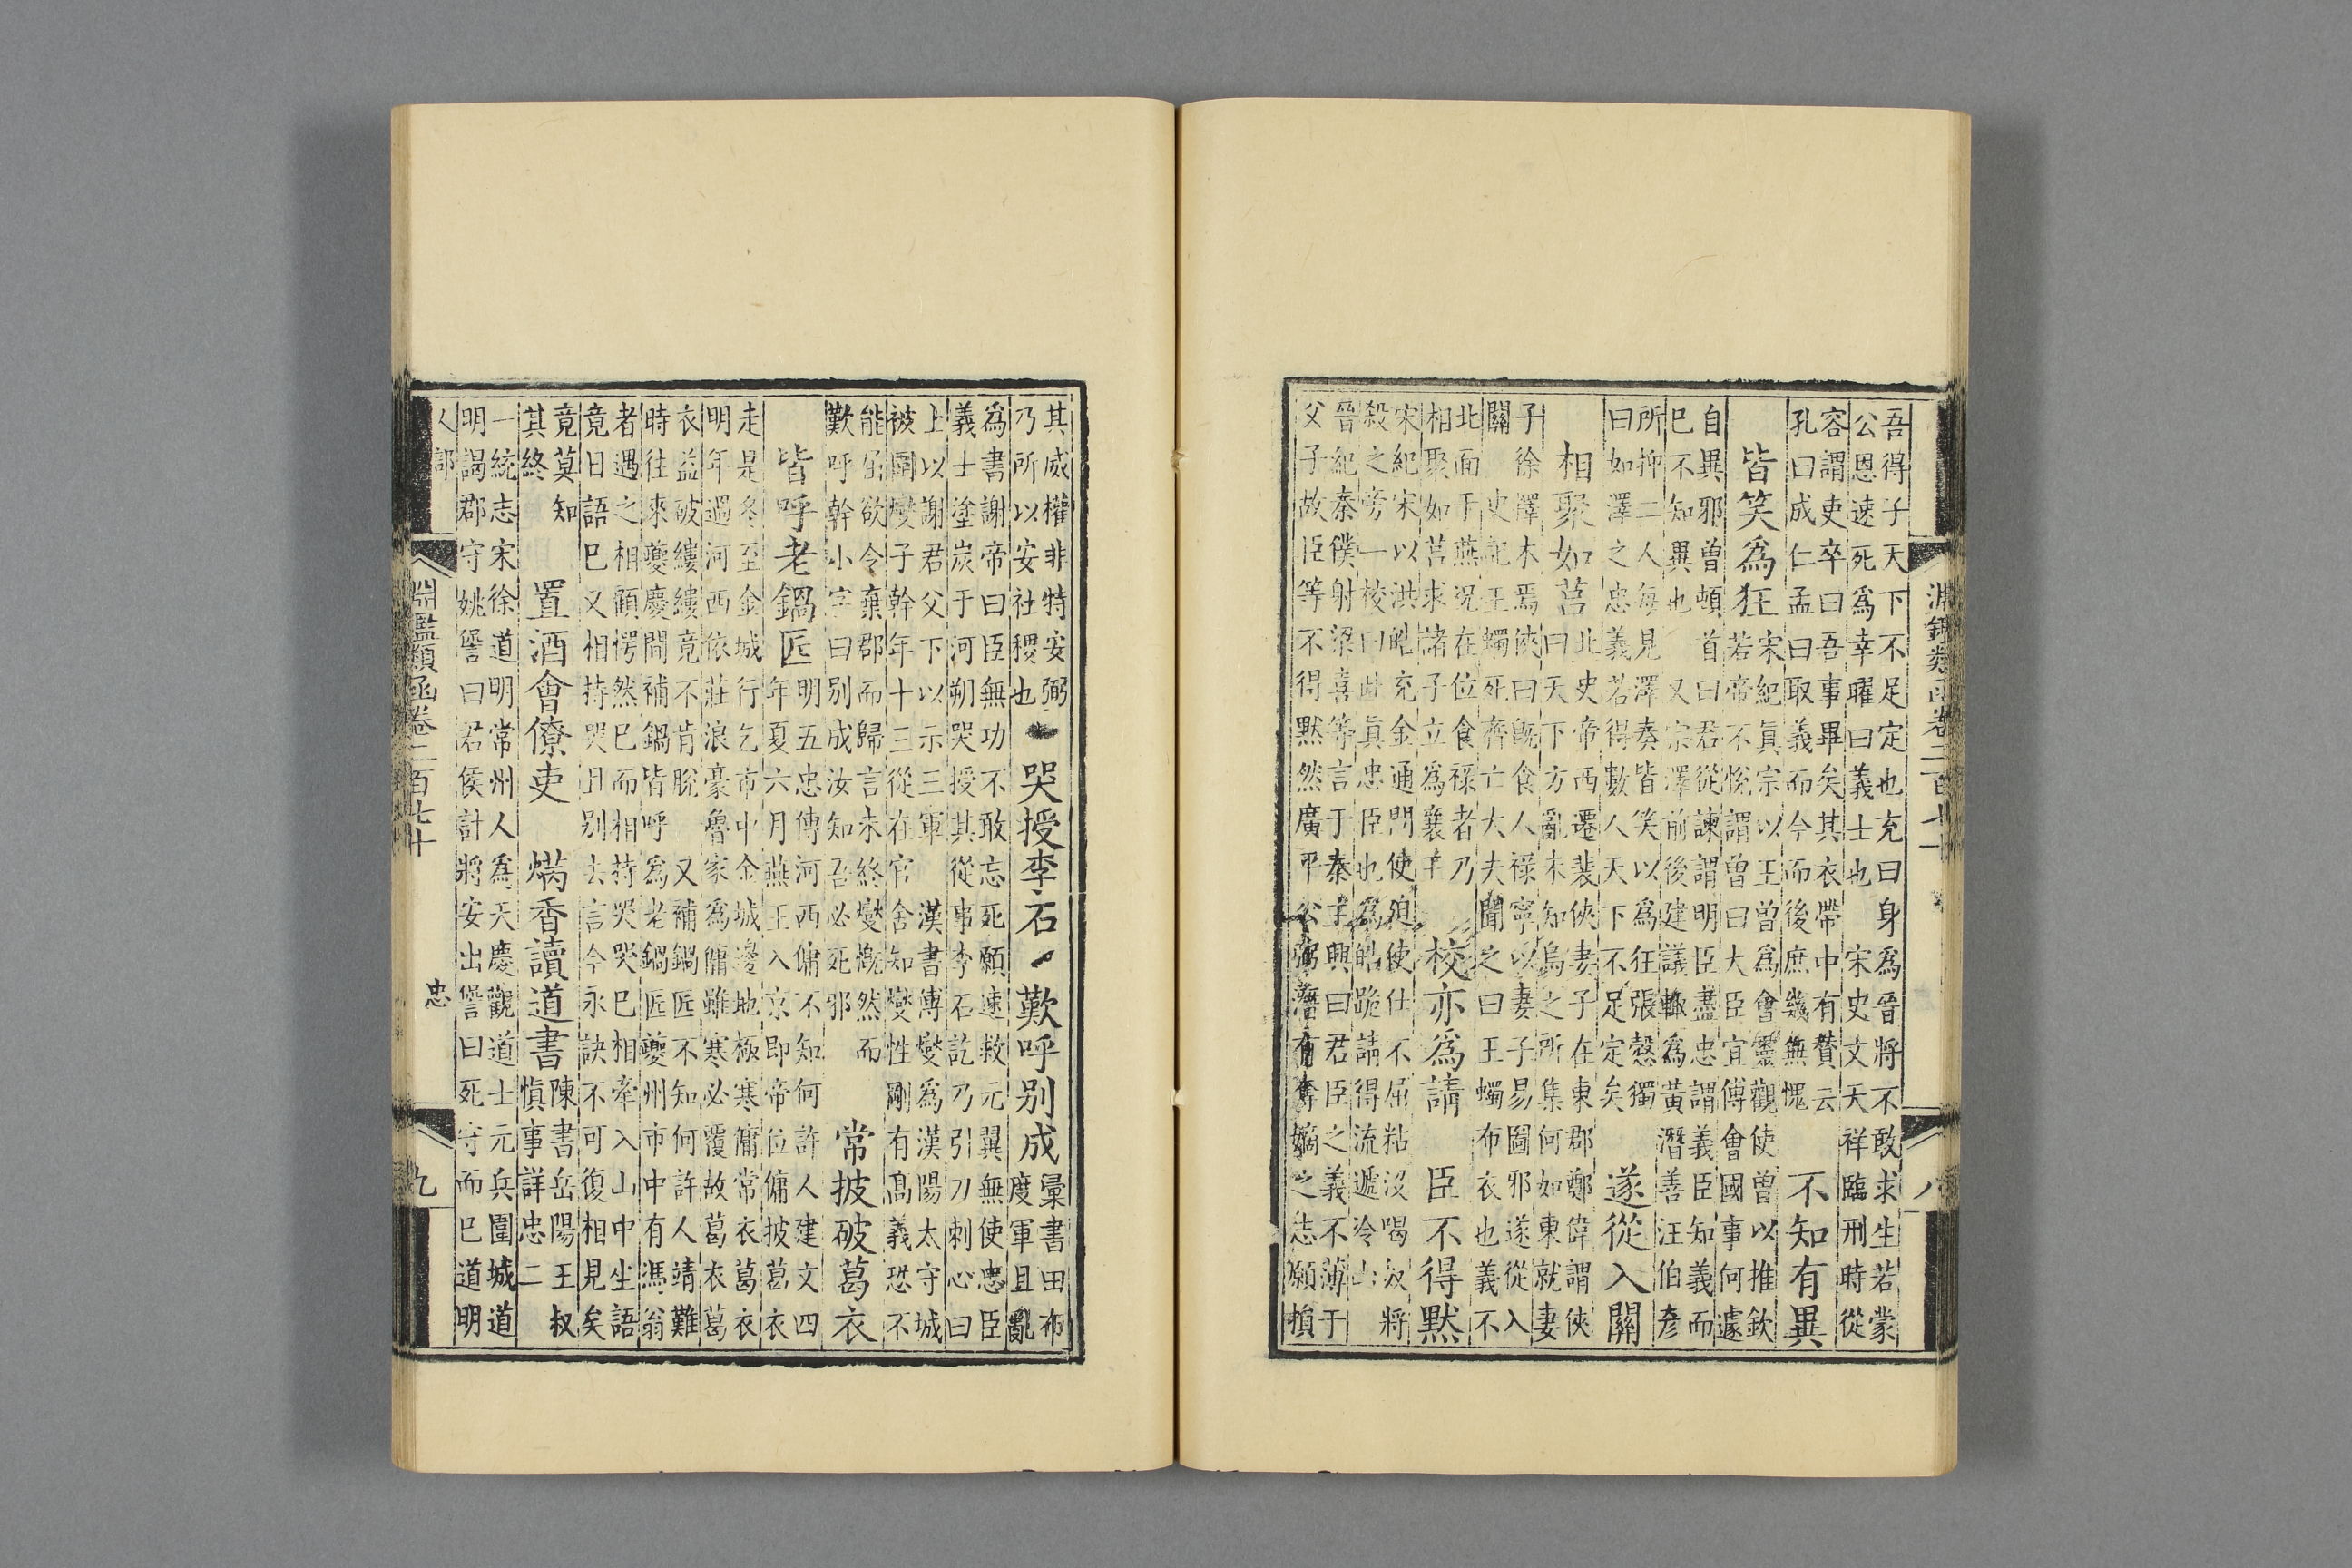 淵鑑類函卷二百七十 八
吾得子天下不足定也充曰身為晉將不敢求生若蒙
公恩速死為幸曜曰義士也 宋史文天祥臨刑時從
容謂吏卒曰吾事畢矣其衣帶中有贊云
孔曰成仁孟曰取義而今而後庶幾無愧
不知有異
皆笑為狂
宋紀真宗以王曾為會靈觀使曾以推欽
若帝不悅謂曾曰大臣宜傅會國事何遽
自異邪曾頓首曰君從諫謂明臣盡忠謂義臣知義而
巳不知異也 又宗澤前後建議輒為黃潛善汪伯彥
所抑二人每見澤奏皆笑以為狂張愨獨
曰如澤之忠義若得數人天下不足定矣
遂從入關
相聚如莒
北史帝西遷裴俠妻子在東郡鄭偉謂俠
曰天下方亂未知烏之所集何如東就妻
子徐擇木焉俠曰既食人祿寧以妻子易圖邪遂從入
關 史記王蠋死齊亡大夫聞之曰王蠋布衣也義不
北面于燕況在位食祿者乃
相聚如莒求諸子立為襄王
校亦為請 臣不得默
宋紀宋以洪皓充金通問使迫使仕不屈粘沒喝奴將
殺之旁一校曰此真忠臣也為皓跪請得流遞冷山
晉紀秦僕射梁喜等言于秦王興曰君臣之義不薄于
父子故臣等不得默然廣平公弼潛有奪嫡之志願損
其威權非特安弼
乃所以安社稷也
哭授李石 歎呼別成
彙書田布
度軍且亂
為書謝帝曰臣無功不敢忘死願速救元翼無使忠臣
義士塗炭于河朔哭授其從事李石訖乃引刀刺心曰
上以謝君父下以示三軍 漢書傅燮為漢陽太守城
被圍燮子幹年十三從在官舍知燮性剛有高義恐不
能屈欲令棄郡而歸言未終燮慨然而
歎呼幹小字曰別成汝知吾必死邪
常披破葛衣
皆呼老鍋匠
明五忠傳河西傭不知何許人建文四
年夏六月燕王入京即帝位傭披葛衣
走是冬至金城行乞市中金城邊地極寒傭常衣葛衣
明年過河西依莊浪豪魯家為傭雖寒必覆故葛衣葛
衣益破縷縷竟不肯脫 又補鍋匠不知何許人靖難
時往來夔慶間補鍋皆呼為老鍋匠夔州市中有馮翁
者遇之相顧愕然巳而相持哭哭巳相牽入山中坐語
竟日語巳又相持哭且別去言今永訣不可復相見矣
竟莫知
其終
置酒會僚吏 爇香讀道書
陳書岳陽王叔
慎事詳忠二
一統志宋徐道明常州人為天慶觀道士元兵圍城道
明謁郡守姚訔曰君侯計將安出訔曰死守而巳道明
人部 忠
淵鑑類函卷二百七十 九